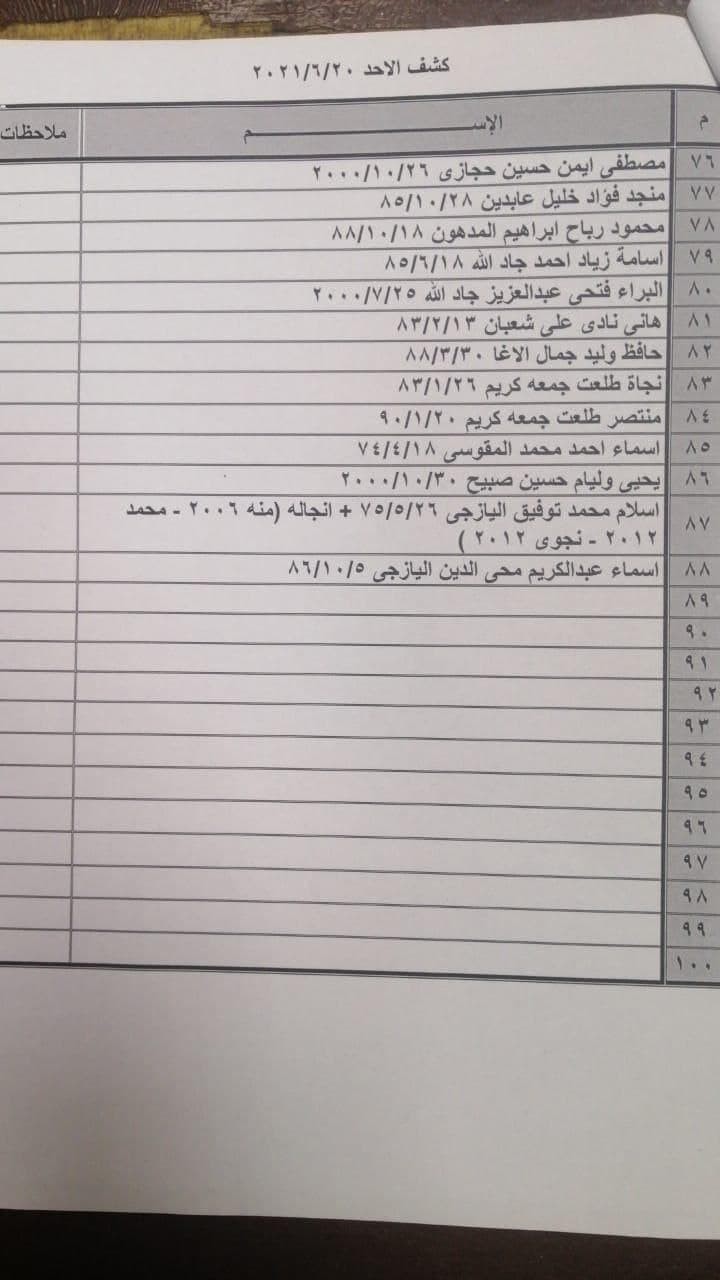 كشف الاحد ٢٠٢١/٦/٢٠
م الإســـــــــــــــم ملاحظات
٧٦ مصطفى ايمن حسين حجازى ٢٠٠٠/١٠/٢٦
٧٧ منجد فؤاد خليل عابدين ٨٥/١٠/٢٨
٧٨ محمود رباح ابراهيم المدهون ٨٨/١٠/١٨
٧٩ اسامة زياد احمد جاد الله ٨٥/٦/١٨
٨٠ البراء فتحى عبدالعزيز جاد الله ٢٠٠٠/٧/٢٥
٨١ هانى نادى على شعبان ٨٣/٢/١٣
٨٢ حافظ وليد جمال الاغا ٨٨/٣/٣٠
٨٣ نجاة طلعت جمعه كريم ٨٣/١/٢٦
٨٤ منتصر طلعت جمعه كريم ٩٠/١/٢٠
٨٥ اسماء احمد محمد المقوسى ٧٤/٤/١٨
٨٦ يحيى وليام حسين صبيح ٢٠٠٠/١٠/٣٠
٨٧ اسلام محمد توفيق اليازجى ٧٥/٥/٢٦ + انجاله (منه ٢٠٠٦ - محمد
٢٠١٢ - نجوى ٢٠١٢ )
٨٨ اسماء عبدالكريم محى الدين اليازجى ٨٦/١٠/٥
٨٩
٩٠
٩١
٩٢
٩٣
٩٤
٩٥
٩٦
٩٧
٩٨
٩٩
١٠٠